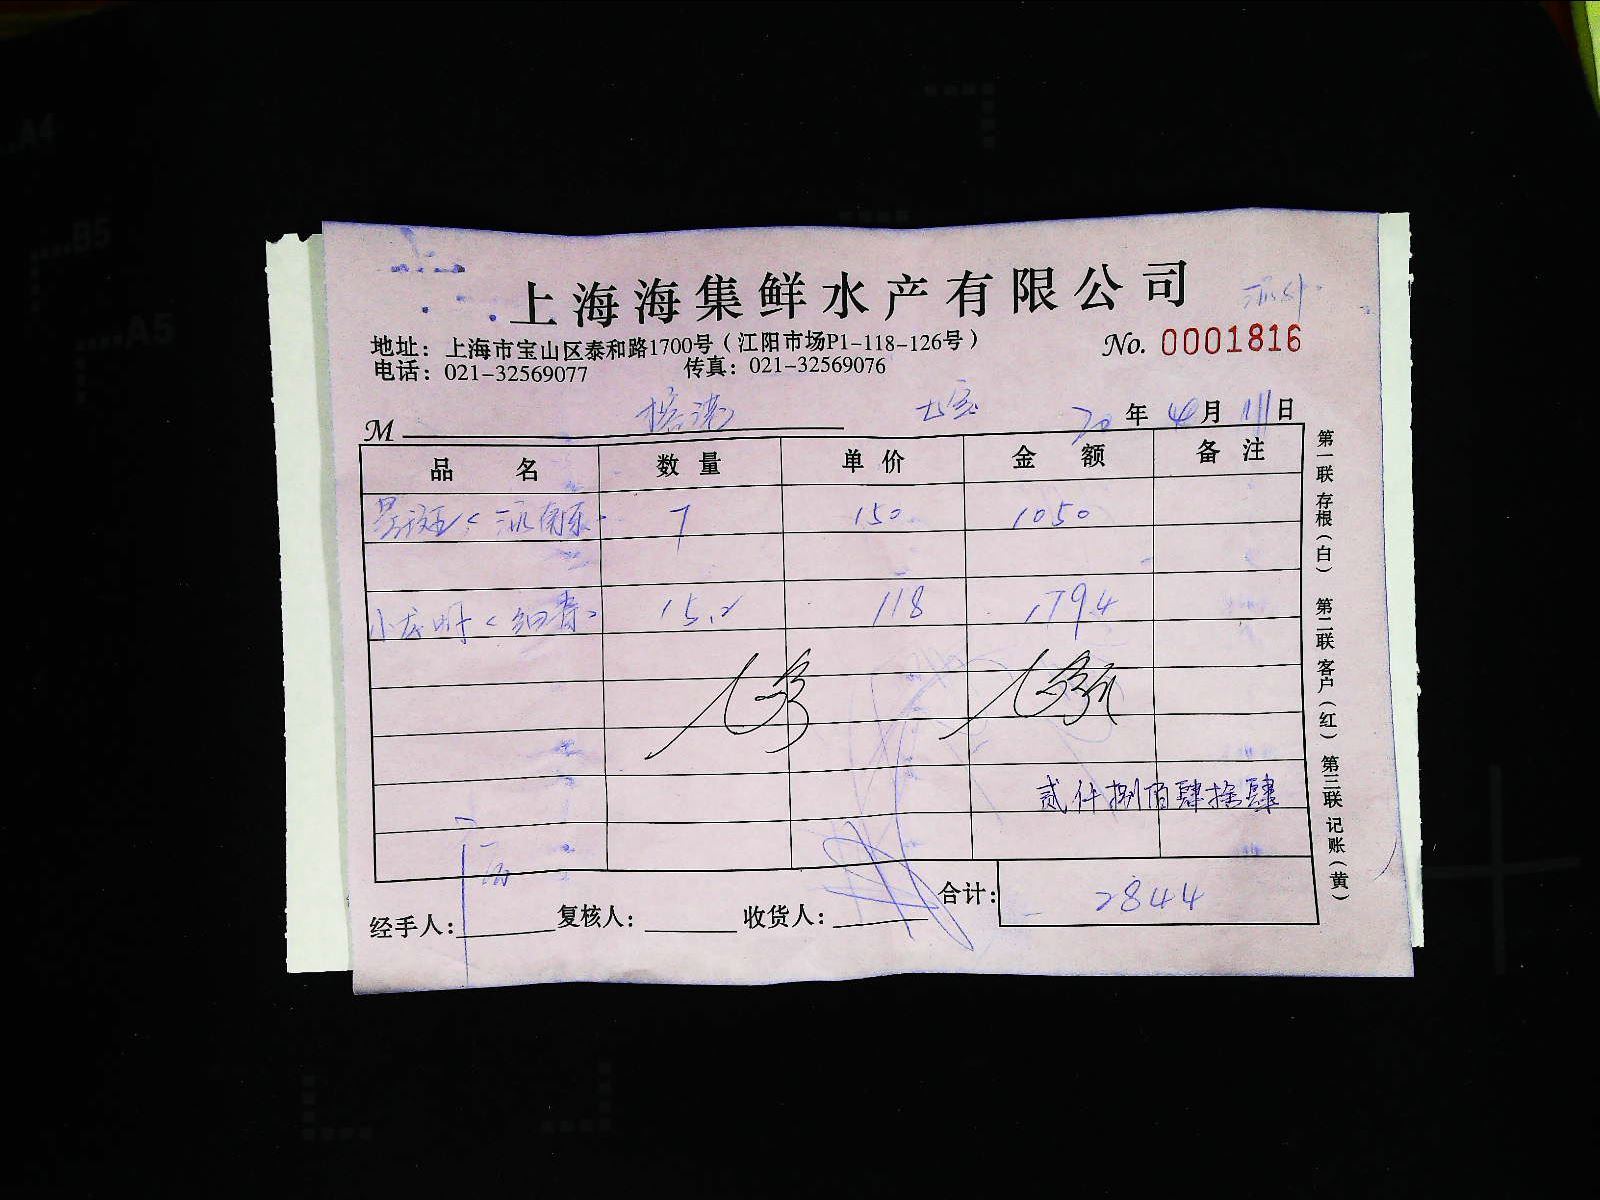 上海海集鲜水产有限公司
地址：上海市宝山区泰和路1700号（江阳市场P1-118-126号）
No. 0001816
电话：021-32569077 传真：021-32569076
M 七宝 20年 月 日
品名 数量 单价 金额 备注
7 150 1050
小龙 15.2 118 1794
贰仟捌佰肆拾肆
合计： 2844
经手人： 复核人： 收货人：
第一联 存根（白） 第二联 客户（红） 第三联 记账（黄）
A4
B5
A5